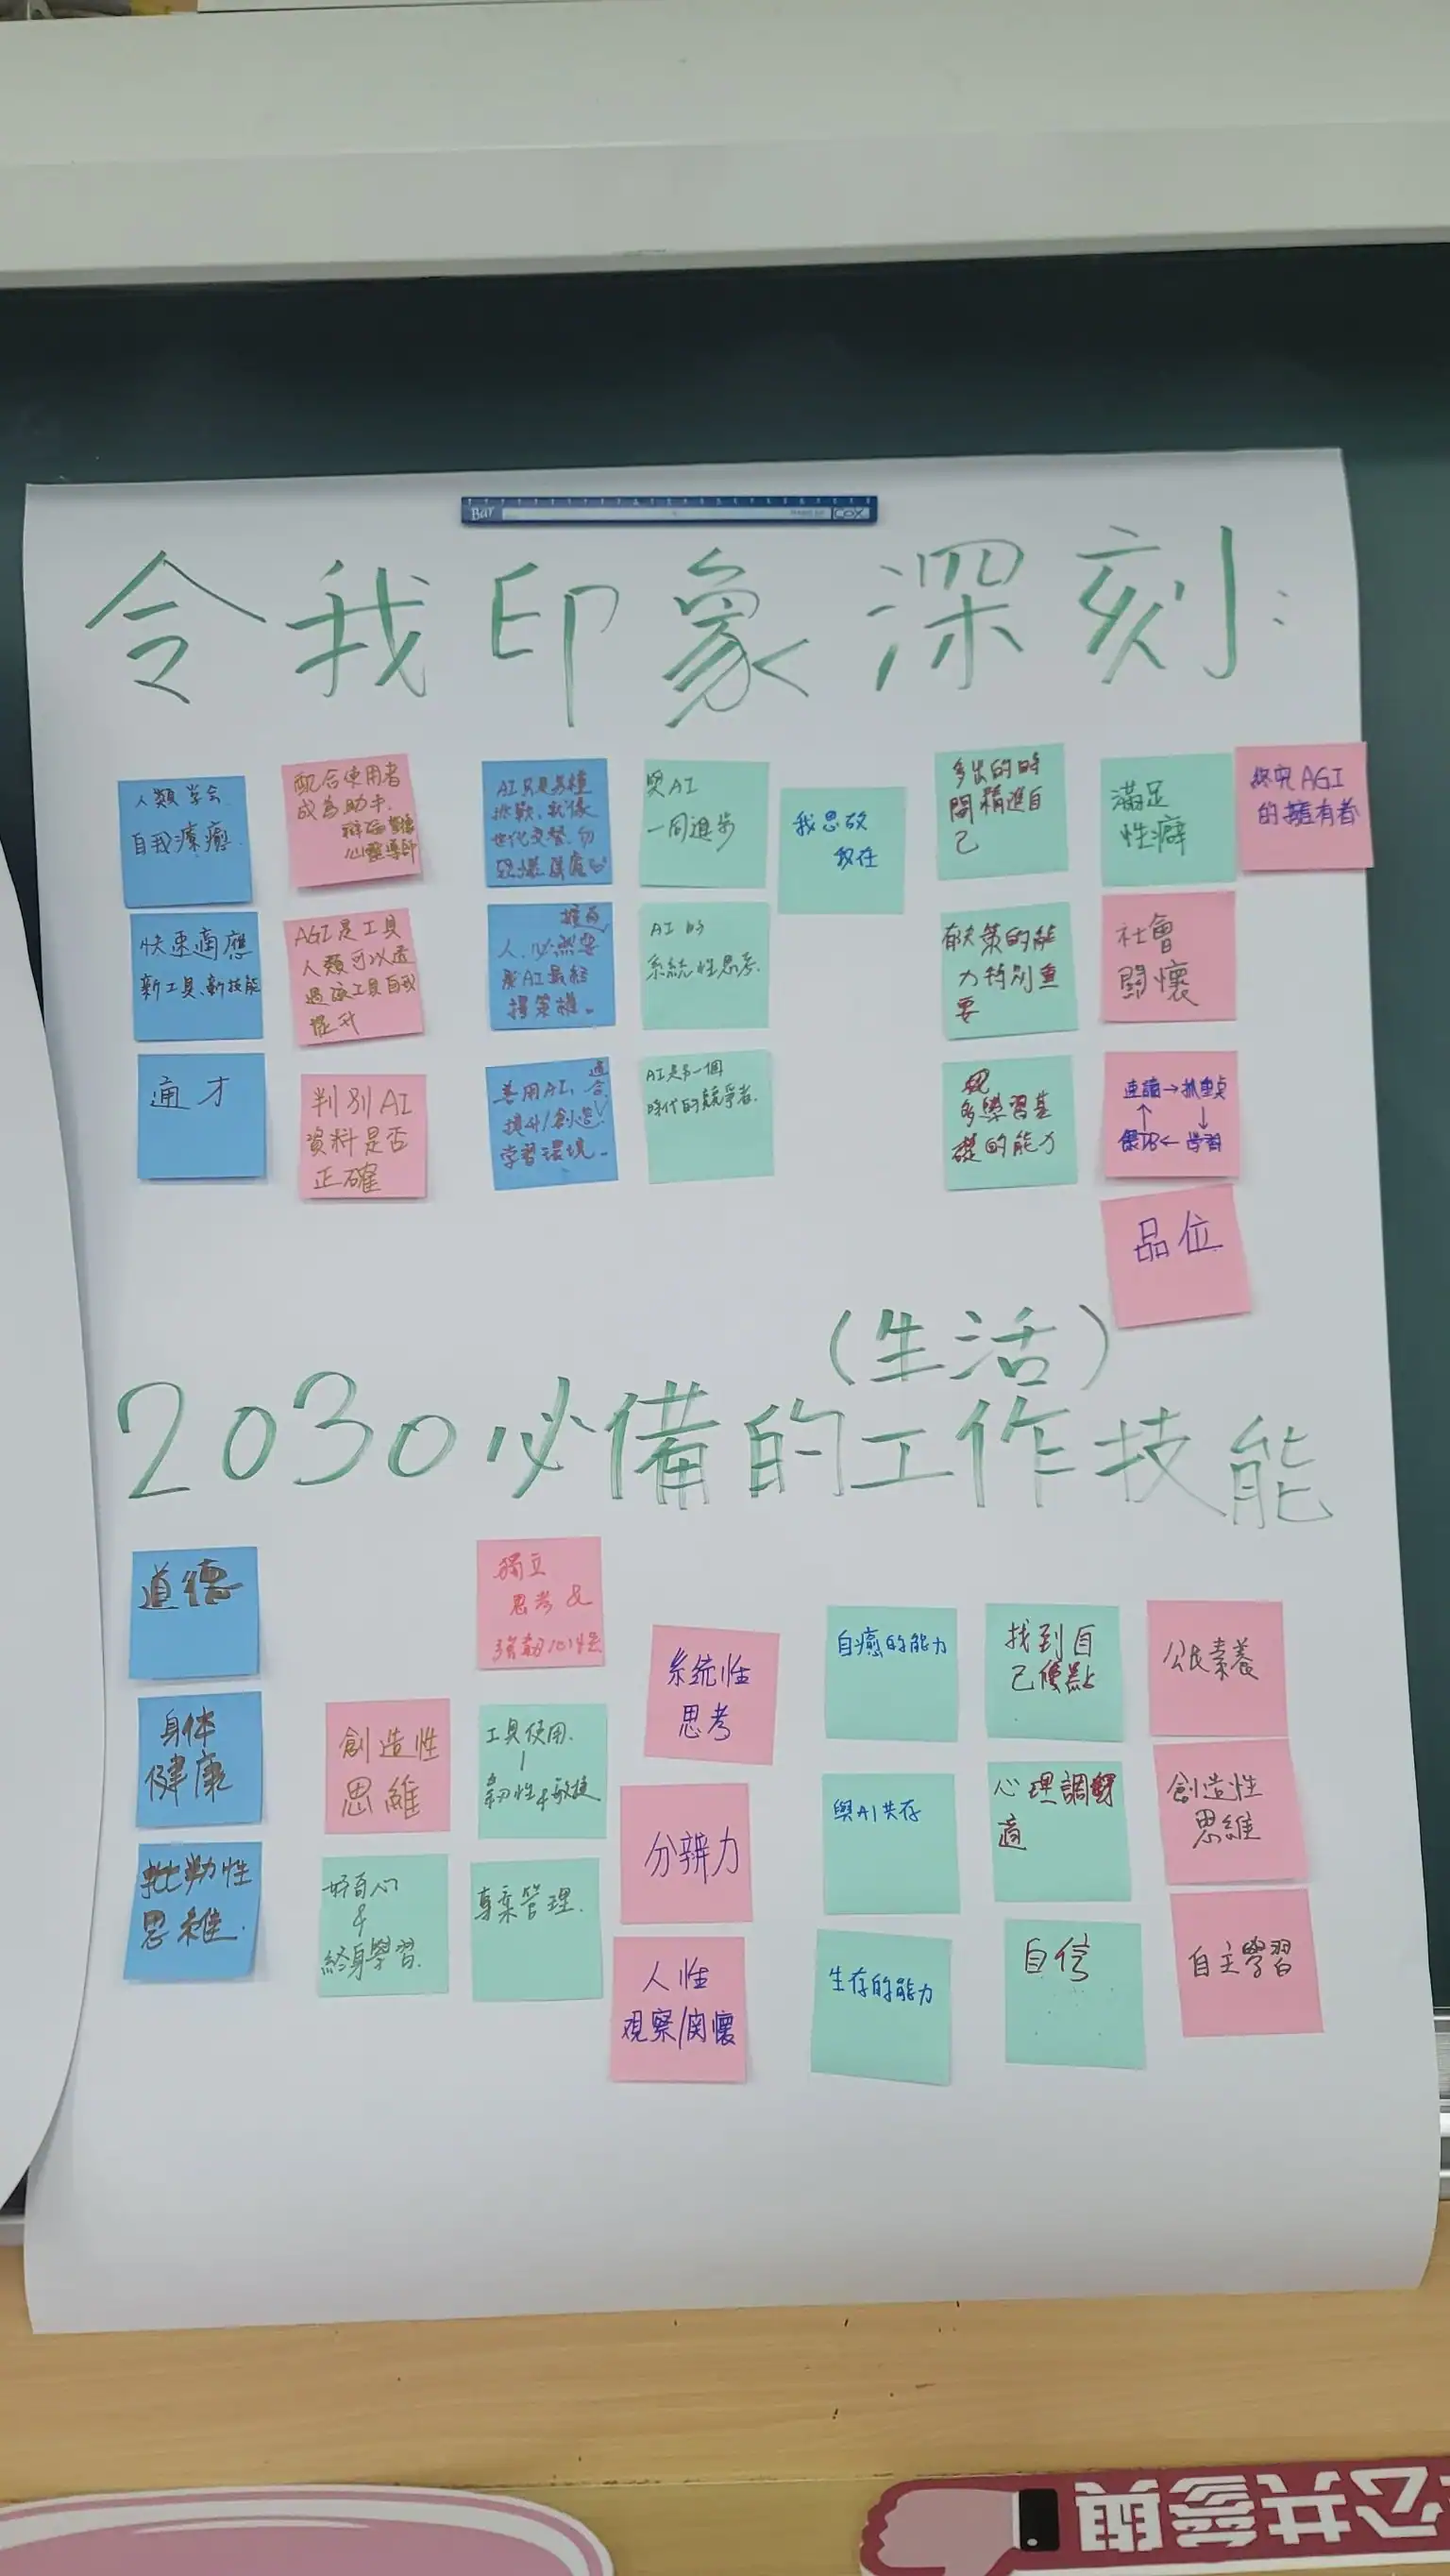 令我印象深刻:
人類學会
自我療癒
快速適應
新工具、新技能
通才
配合使用者
成為助手.
心靈導師
AGI是工具
人類可以透
過該工具自我
提升
判別AI
資料是否
正確
AI只是另種
挑戰,就像
世代交替,勿
擁有
人,必然要
善用AI,
學習環境。
與AI
一同進步
AI的
系統性思考.
AI是另一個
時代的競爭者.
我思故
我在
多出的時
間精進自
己
有決策的能
力特別重
要
多學習基
礎的能力
滿足
性癖
社會
關懷
連讀→抓重點
↑ ↓
學習
品位
終究AGI
的擁有者
(生活)
2030必備的工作技能
道德
身体
健康
批判性
思維.
創造性
思維
好奇心
&
終身學習.
獨立
思考 &
工具使用.
韌性&敏捷
專案管理.
系統性
思考
分辨力
人性
观察/関懷
自癒的能力
與AI共存
生存的能力
找到自
己優點
心理調
適
自信
公民素養
創造性
思維
自主學習
Bar
COX
公共參與